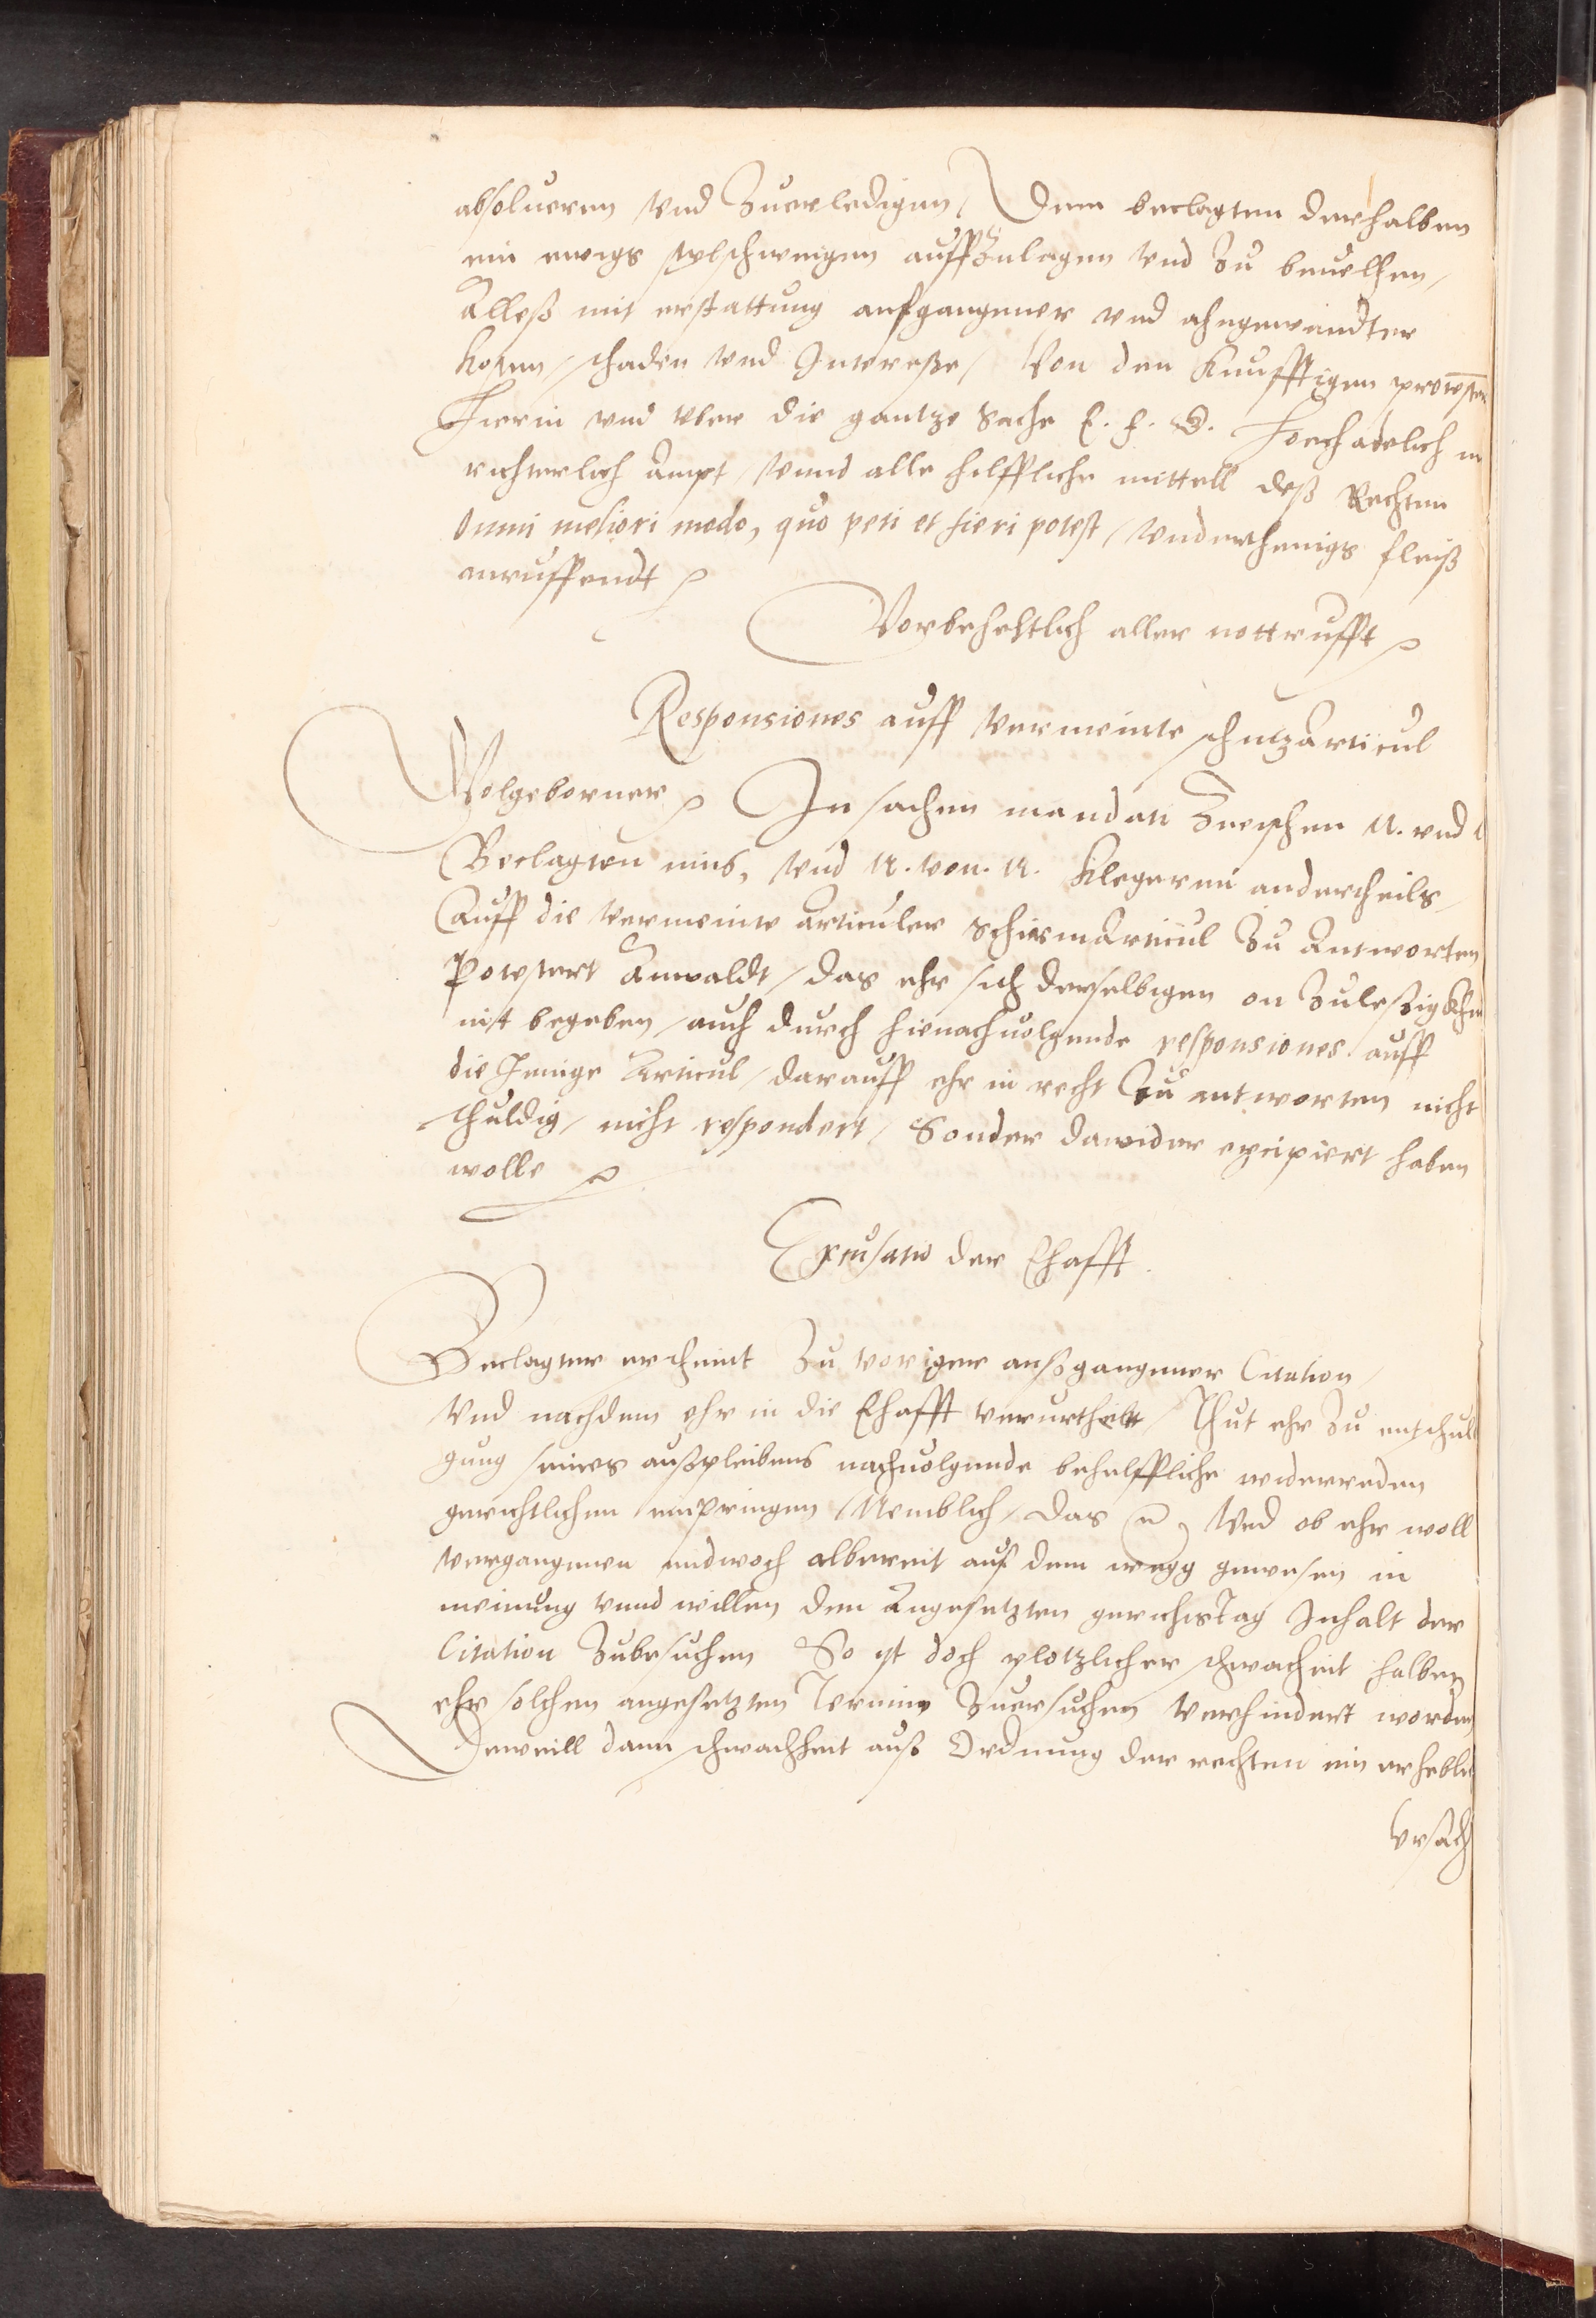 absolueren vnd Zuerledigen / Dem beclagten derhalben
ein ewigs stylschweigen auffzulegen vnd Zu beuelhen /
Alleß mit erstattung aufgangener vnd ahngewandter
kosten / schaden vnd Interesse / Von den Kunfftigen
Hierin vnd vber die gantze Sache E. f. G. hochadelich
richterlich Ampt / vnnd alle hilffliche mittell deß Rechten
Omni meliori modo, quo peti et fieri potest / vnderthenigs fleiß
anruffendt
Vorbeheltlich aller notturfft
Responsiones auff vermeinte schutzArticul
Wolgeborner In sachen mandati Zwischen N. vnd
Beclagten eins, vnd N. von. N. Klegeren anderstheils /
Auff die vermeinte articuler SchirmArticul Zu Antworten
Potestert Anwaldt / das ehr sich derselbigen on Zuleßigkheit
nit begeben / auch durch hienachuolgende responsiones auff
die Jenige Articul / darauff ehr in recht Zu antworten nicht
schuldig / nicht respondert / Sonder dawider excipiert haben
wolle
Excusatio der Ehafft.
Beclagter erscheint Zu voriger außgangener Citation /
Vnd nachdem ehr in die Ehafft verurtheilt / Thut ehr Zu entschul
gung seines außpleibens nachuolgende behelffliche widerreden
gerichtlichen einpringen / Nemblich / das Vnd ob ehr woll
vergangenen midwoch albereit auf dem wegg gewesen in
meinung vnnd willen den Angesetzten gerichtsTag Inhalt der
Citation Zubesuchen So ist doch plotzlicher schwacheit halben
ehr solchen angesetzten Termin Zuersuchen verhindert worden
Deweill dann schwachheit auß Ordnung der rechten ein
Vrsach